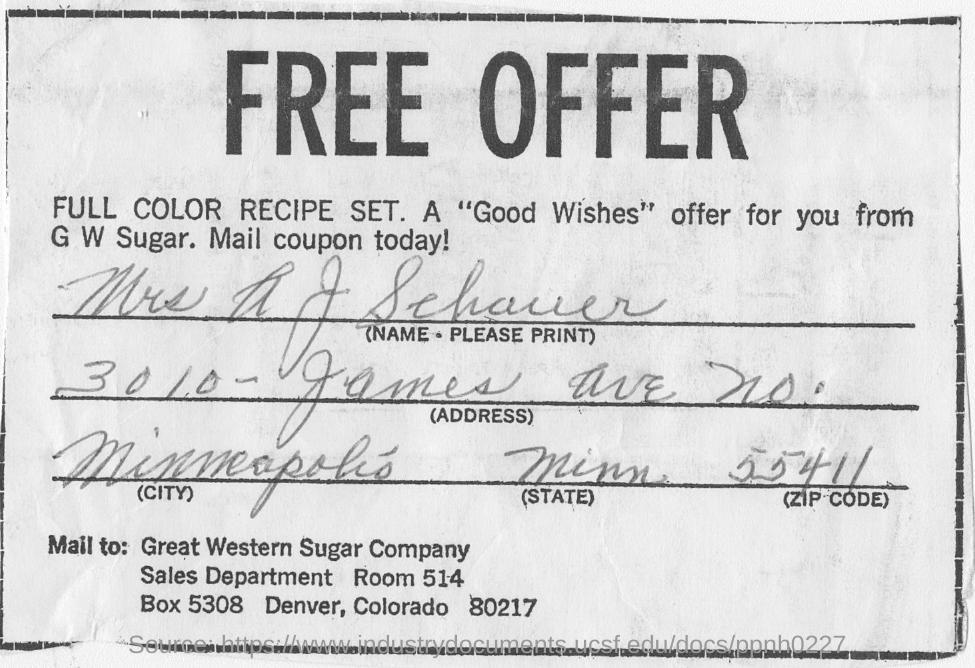 FREE OFFER
FULL COLOR RECIPE SET. A "Good Wishes" offer for you from
G W Sugar. Mail coupon today!
Mrs A J Schauer
(NAME - PLEASE PRINT)
3010 - James Ave No.
(ADDRESS)
Minneapolis Minn 55411
(CITY) (STATE) (ZIP CODE)
Mail to: Great Western Sugar Company
Sales Department Room 514
Box 5308 Denver, Colorado 80217
Source: https://www.industrydocuments.ucsf.edu/docs/ppnh0227